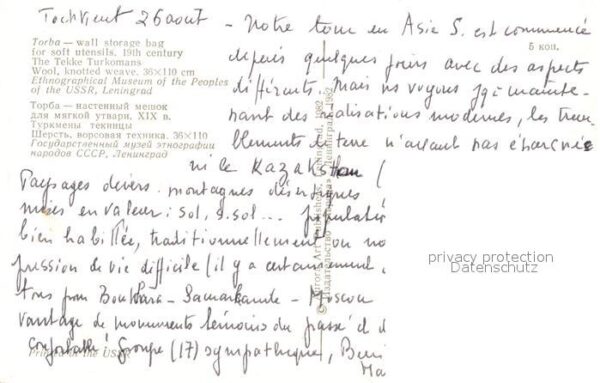 Tachkent 26 aout - Notre tour en Asie S. est commencé
depuis quelques jours avec des aspects
différents. Mais ns voyons jqu'à mainte-
nant des réalisations modernes, les trem-
blements de terre n'ayant pas épargné
ni le Kazakstan (
Paysages divers. montagnes désertiques
mises en valeur : sol, s.sol ... populatio
bien habillée, traditionnellement ou no
pression de vie difficile (il y a certainement,
tons pour Boukhara - Samarkande - Moscou
vantage de monuments témoins du passé et d
confortable. Groupe (17) sympathique,
Torba — wall storage bag
for soft utensils, 19th century
The Tekke Turkomans
Wool, knotted weave. 36×110 cm
Ethnographical Museum of the Peoples
of the USSR, Leningrad
Торба — настенный мешок
для мягкой утвари, XIX в.
Туркмены текинцы
Шерсть, ворсовая техника. 36×110
Государственный музей этнографии
народов СССР, Ленинград
5 коп.
© Aurora Art Publishers, Leningrad, 1982
Издательство «Аврора», Ленинград, 1982
Printed in the USSR
privacy protection
Datenschutz